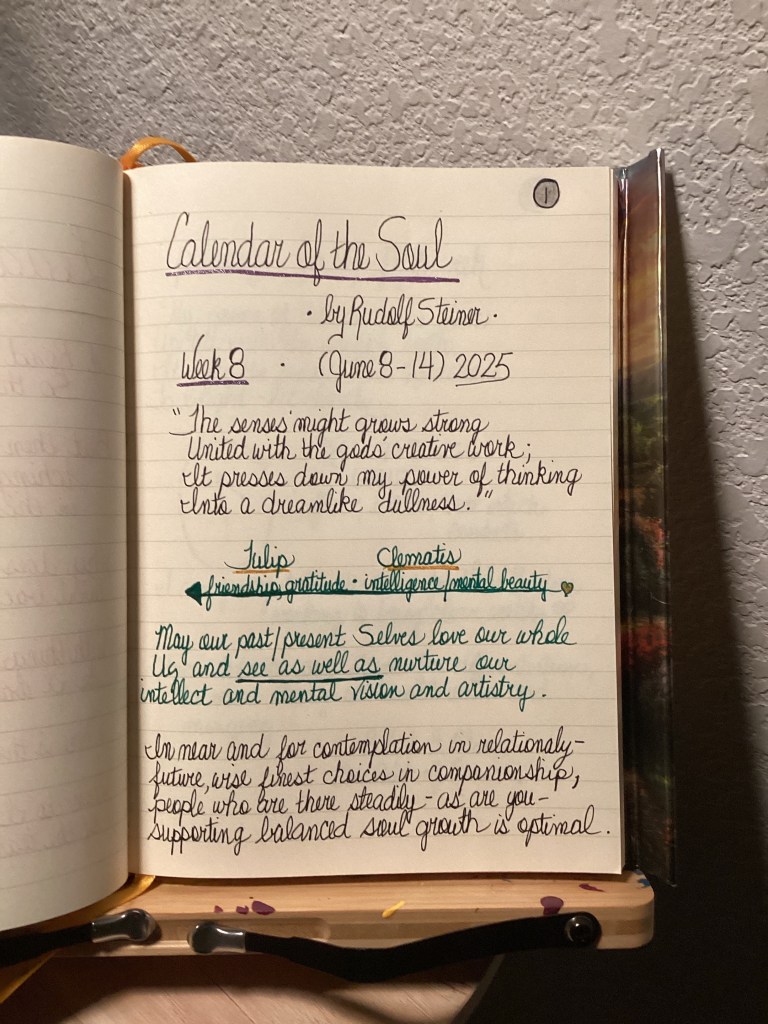 1
Calendar of the Soul
· by Rudolf Steiner ·
Week 8 · (June 8-14) 2025
"The senses' might grows strong
United with the gods' creative work;
It presses down my power of thinking
Into a dreamlike dullness."
Tulip Clematis
friendship, gratitude · intelligence/mental beauty
May our past/present Selves love our whole
Us and see as well as nurture our
intellect and mental vision and artistry.
In near and far contemplation in relationaly-
future, wise finest choices in companionship,
people who are there steadily - as are you -
supporting balanced soul growth is optimal.